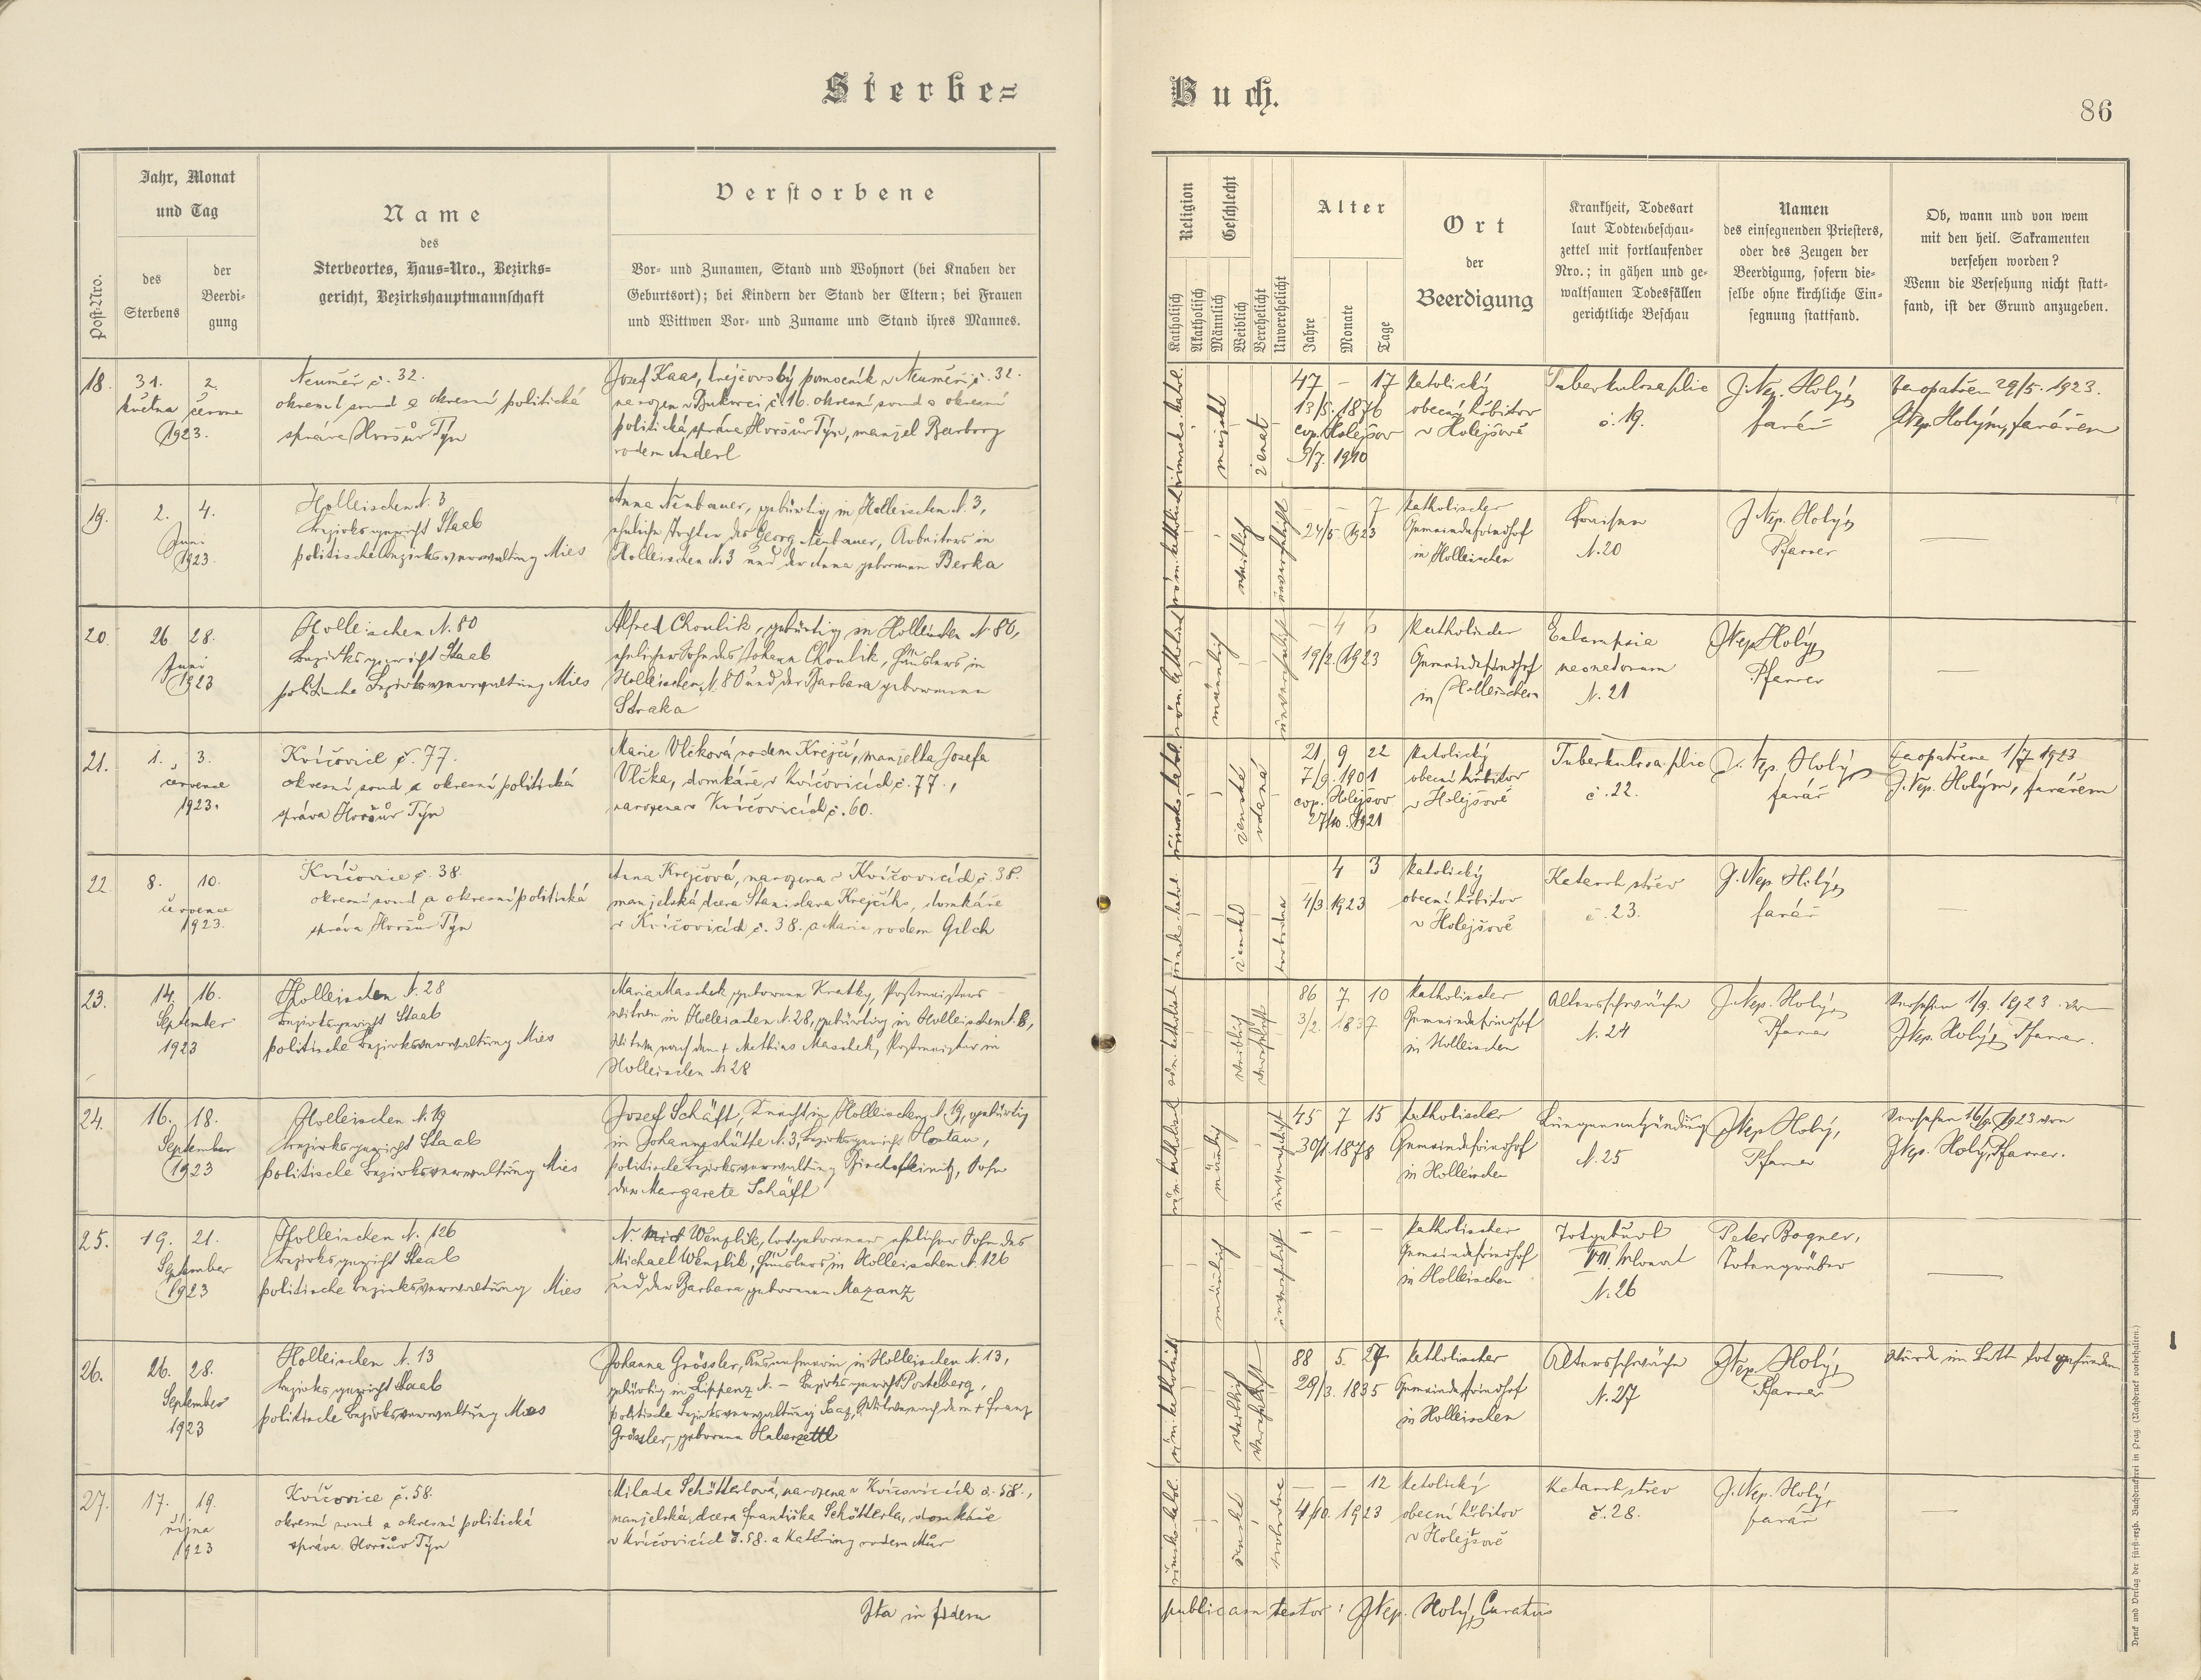 Sterbe=
Buch.
86
Post-Nro.
Jahr, Monat
und Tag
des
Sterbens
der
Beerdi-
gung
Name
des
Sterbeortes, Haus-Nro., Bezirks=
gericht, Bezirkshauptmannschaft
Verstorbene
Vor- und Zunamen, Stand und Wohnort (bei Knaben der
Geburtsort); bei Kindern der Stand der Eltern; bei Frauen
und Wittwen Vor- und Zuname und Stand ihres Mannes.
Religion
Katholisch
Akatholisch
Geschlecht
Männlich
Weiblich
Verehelicht
Unverehelicht
Alter
Jahre
Monate
Tage
Ort
der
Beerdigung
Krankheit, Todesart
laut Todtenbeschau-
zettel mit fortlaufender
Nro.; in gähen und ge-
waltsamen Todesfällen
gerichtliche Beschau
Namen
des einsegnenden Priesters,
oder des Zeugen der
Beerdigung, sofern die-
selbe ohne kirchliche Ein-
segnung stattfand.
Ob, wann und von wem
mit den heil. Sakramenten
versehen worden?
Wenn die Versehung nicht statt-
fand, ist der Grund anzugeben.
18.
31. 2.
května června
1923.
Neuměř č. 32.
okresní soud a okresní politická
správa Horšův Týn
Josef Kaas, krejčovský pomocník v Neuměři č. 32.
narozen v Bukovci č. 16. okresní soud a okresní
politická správa Horšův Týn, manžel Barbory
rodem Anderl
římsko katol.
mužské
ženat
47 – 17
13/5. 1876
cop. Holejšov
5/7. 1910
katolický
obecní hřbitov
v Holejšově
Tuberkulosa plic
č. 19.
J. Nep. Holý,
farář
zaopatřen 29/5. 1923.
J. Nep. Holým, farářem
19.
2. 4.
Juni
1923.
Holleischen N. 3
Bezirksgericht Staab
politische Bezirksverwaltung Mies
Anna Neubauer, gebürtig in Holleischen N. 3,
eheliche Tochter des Georg Neubauer, Arbeiters in
Holleischen N. 3 und der Anna geborenen Berka
röm. katholisch
weiblich
unverehelicht
– – 7
24/5. 1923
katholischer
Gemeindefriedhof
in Holleischen
Fraisen
N. 20
J. Nep. Holý,
Pfarrer
—
20.
26. 28.
Juni
1923
Holleischen N. 80
Bezirksgericht Staab
politische Bezirksverwaltung Mies
Alfred Choulik, gebürtig in Holleischen N. 80,
ehelicher Sohn des Johann Choulik, Häuslers in
Holleischen N. 80 und der Barbara geborenen
Straka
röm. katholisch
männlich
unverehelicht
– 4 6
19/2. 1923
katholischer
Gemeindefriedhof
in Holleischen
Eclampsia
neonatorum
N. 21
J. Nep. Holý,
Pfarrer
—
21.
1. 3.
července
1923.
Kvíčovice č. 77.
okresní soud a okresní politická
správa Horšův Týn
Marie Vlčková rodem Krejčí, manželka Josefa
Vlčka, domkáře v Kvíčovicích č. 77.,
narozena v Kvíčovicích č. 60.
římsko katol.
ženské
vdaná
21 9 22
7/9. 1901
cop. Holejšov
27/10. 1921
katolický
obecní hřbitov
v Holejšově
Tuberkulosa plic
č. 22.
J. Nep. Holý,
farář
zaopatřena 1/7 1923
J. Nep. Holým, farářem
22.
8. 10.
července
1923.
Kvíčovice č. 38.
okresní soud a okresní politická
správa Horšův Týn
Anna Krejčová, narozena v Kvíčovicích č. 38.
manželská dcera Stanislava Krejčího, domkáře
v Kvíčovicích č. 38. a Marie rodem Gilch
římsko katol.
ženské
svobodna
– 4 3
4/3. 1923
katolický
obecní hřbitov
v Holejšově
Katarrh střev
č. 23.
J. Nep. Holý,
farář
—
23.
14. 16.
September
1923
Holleischen N. 28
Bezirksgericht Staab
politische Bezirksverwaltung Mies
Maria Maschek geborene Kratky, Postmeisters-
witwe in Holleischen N. 28, gebürtig in Holleischen N. 8,
Witwe nach dem + Mathias Maschek, Postmeister in
Holleischen N. 28
röm. katholisch
weiblich
verehelicht
86 7 10
3/2. 1837
katholischer
Gemeindefriedhof
in Holleischen
Altersschwäche
N. 24
J. Nep. Holý,
Pfarrer
Versehen 1/9. 1923 von
J. Nep. Holý, Pfarrer.
24.
16. 18.
September
1923
Holleischen N. 19
Bezirksgericht Staab
politische Bezirksverwaltung Mies
Josef Schäft, Knecht in Holleischen N. 19, gebürtig
in Johanneshütte N. 3, Bezirksgericht Hostau,
politische Bezirksverwaltung Bischofteinitz, Sohn
der Margarete Schäft
röm. katholisch
männlich
unverehelicht
45 7 15
30/1. 1878
katholischer
Gemeindefriedhof
in Holleischen
Lungenentzündung
N. 25
J. Nep. Holý,
Pfarrer
Versehen 16/9. 1923 von
J. Nep. Holý, Pfarrer.
25.
19. 21.
September
1923
Holleischen N. 126
Bezirksgericht Staab
politische Bezirksverwaltung Mies
N. Wenzlik, totgeborener ehelicher Sohn des
Michael Wenzlik, Häuslers in Holleischen N. 126
und der Barbara geborenen Mazanz
männlich
unverehelicht
– – –
katholischer
Gemeindefriedhof
in Holleischen
Totgeburt
VIII. Monat
N. 26
Peter Bogner,
Totengräber
—
26.
26. 28.
September
1923
Holleischen N. 13
Bezirksgericht Staab
politische Bezirksverwaltung Mies
Johanna Grössler, in Holleischen N. 13,
gebürtig in Lippenz N. – Bezirksgericht Postelberg,
politische Bezirksverwaltung Saaz, Witwe nach dem + Franz
Grössler, geborene Haberzettl
röm. katholisch
weiblich
verehelicht
88 5. 27
29/3. 1835
katholischer
Gemeindefriedhof
in Holleischen
Altersschwäche
N. 27
J. Nep. Holý,
Pfarrer
Wurde im Bette tot gefunden
27.
17. 19.
října
1923
Kvíčovice č. 58.
okresní soud a okresní politická
správa Horšův Týn
Milada Schötterlová, narozena v Kvíčovicích č. 58.,
manželská dcera Františka Schötterla, domkáře
v Kvíčovicích č. 58. a Kateřiny rodem Mür
římsko katol.
ženské
svobodna
– – 12
4/10. 1923
katolický
obecní hřbitov
v Holejšově
Katarrh střev
č. 28.
J. Nep. Holý,
farář
—
Ita in fidem
publicam testor: J. Nep. Holý, Curatus
Druck und Verlag der fürst-erzb. Buchdruckerei in Prag. (Nachdruck vorbehalten.)